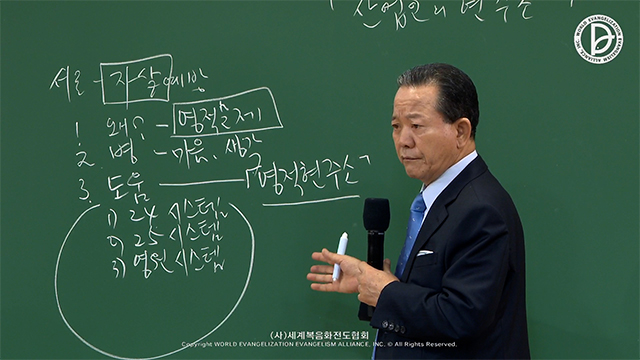 「산업인의 현주소」
WORLD EVANGELIZATION EVANGELISM ALLIANCE, INC.
서론 - 자살예방
1. 왜? - 영적실제
2. 병 - 마음, 생각
3. 도움 - 「영적현주소」
1) 24 시스템
2) 25 시스템
3) 영원 시스템
(사)세계복음화전도협회
Copyright WORLD EVANGELIZATION EVANGELISM ALLIANCE, INC. © All Rights Reserved.